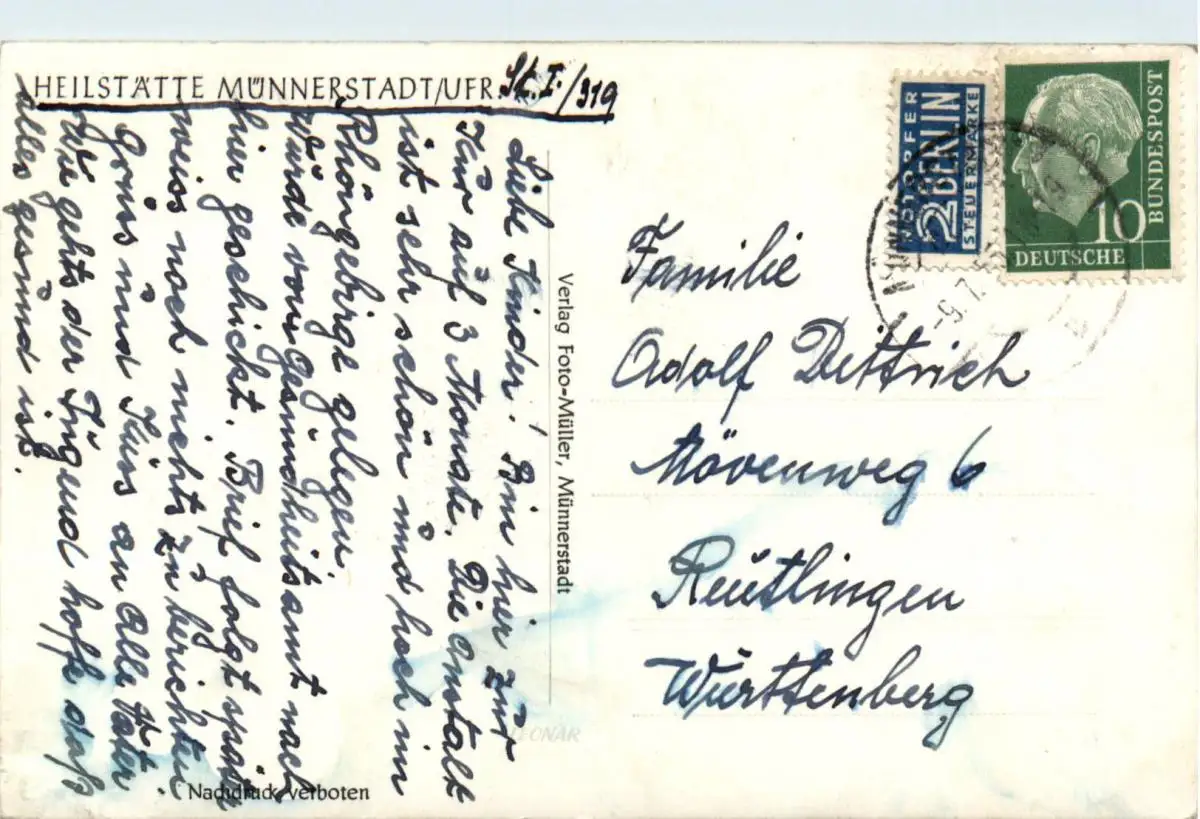 HEILSTÄTTE MÜNNERSTADT/UFR. St. I./319
Liebe Kinder! Bin hier zur
Kur auf 3 Monate. Die Anstalt
ist sehr schön und hoch im
Rhöngebirge gelegen.
Würde vom Gesundheitsamt nach
hier geschickt. Brief folgt später
weiss noch nichts zu berichten
Gruss und Kuss an Alle Vater
Wie gehts der Jugend hoffe daß
alles gesund ist.
Verlag Foto-Müller, Münnerstadt
LEONAR
Nachdruck verboten
NOTOPFER
2 BERLIN
STEUERMARKE
10
DEUTSCHE
BUNDESPOST
Familie
Adolf Dittrich
Mövenweg 6
Reutlingen
Württenberg